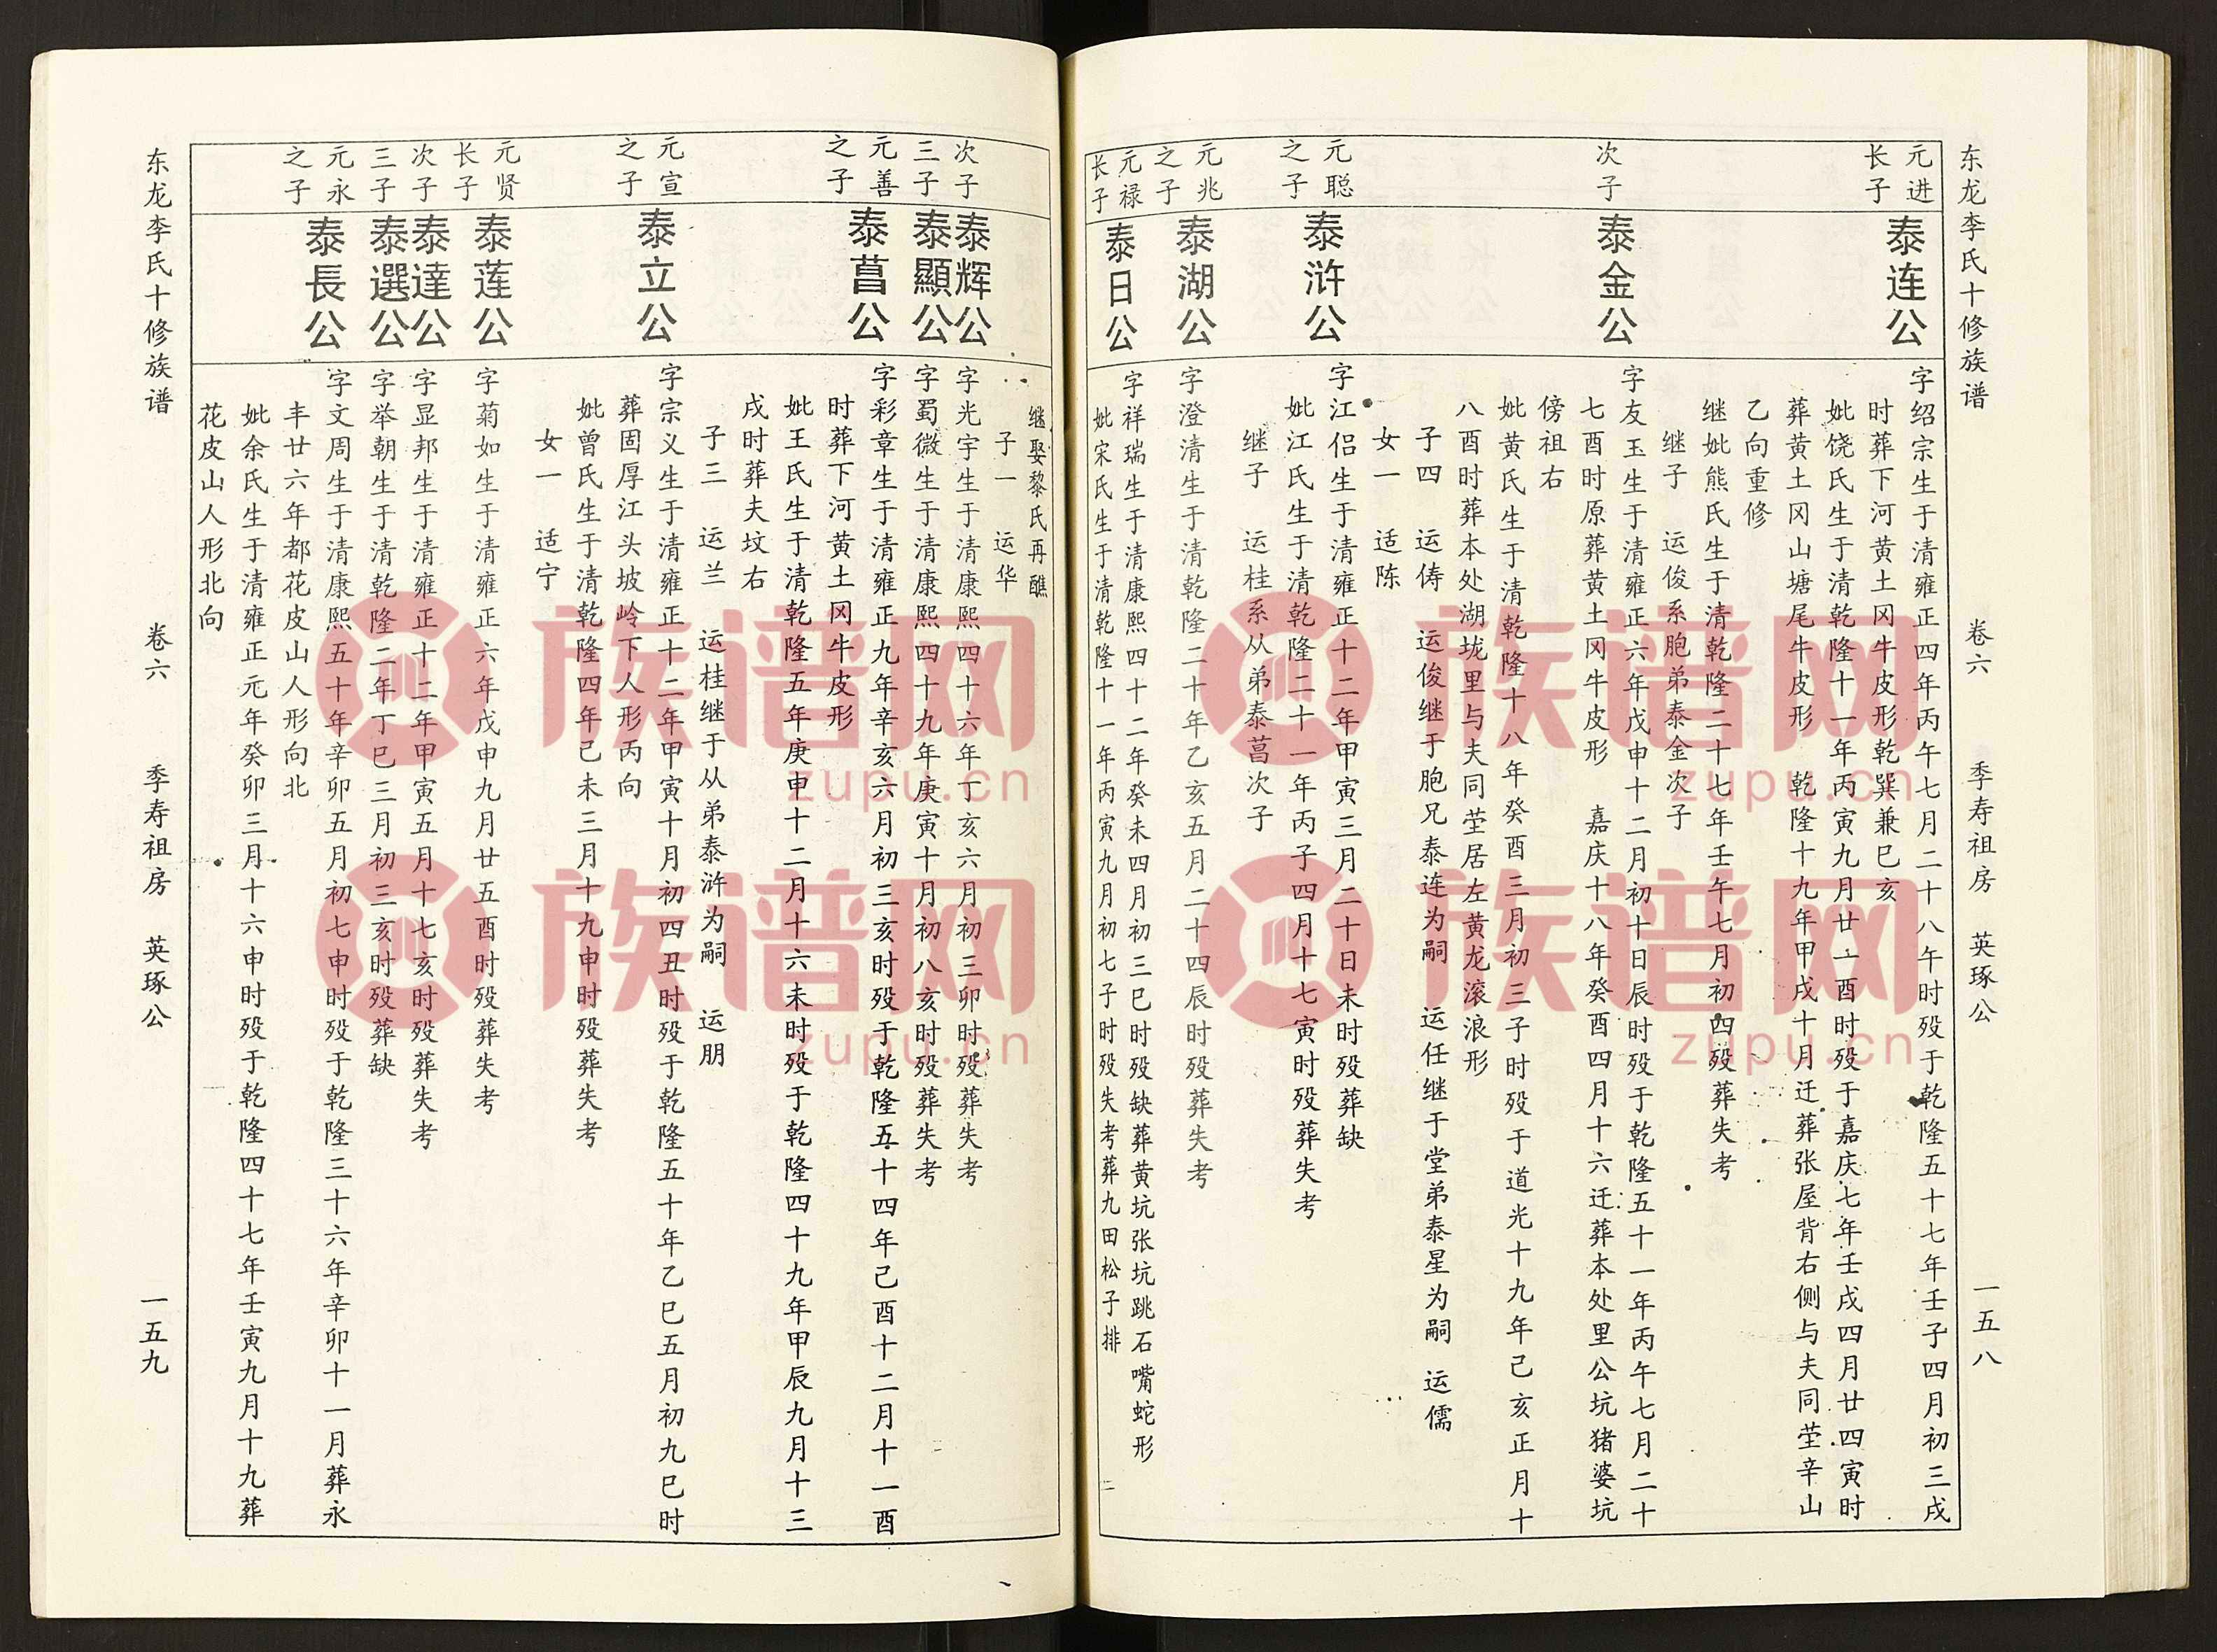 东龙李氏十修族谱 卷六 季寿祖房 英琢公 一五八
元进
长子
泰连公
字绍宗生于清雍正四年丙午七月二十八午时殁于乾隆五十七年壬子四月初三戌
时葬下河黄土冈牛皮形乾巽兼巳亥
妣饶氏生于清乾隆十一年丙寅九月廿一酉时殁于嘉庆七年壬戌四月廿四寅时
葬黄土冈山塘尾牛皮形 乾隆十九年甲戌十月迁葬张屋背右侧与夫同茔辛山
乙向重修
继妣熊氏生于清乾隆二十七年壬午七月初四殁葬失考
继子 运俊系胞弟泰金次子
次子
泰金公
字友玉生于清雍正六年戊申十二月初十日辰时殁于乾隆五十一年丙午七月二十
七酉时原葬黄土冈牛皮形 嘉庆十八年癸酉四月十六迁葬本处里公坑猪婆坑
傍祖右
妣黄氏生于清乾隆十八年癸酉三月初三子时殁于道光十九年己亥正月十
八酉时葬本处湖垅里与夫同茔居左黄龙滚浪形
子四 运俦 运俊继于胞兄泰连为嗣 运任继于堂弟泰星为嗣 运儒
女一 适陈
元聪
之子
泰浒公
字江侣生于清雍正十二年甲寅三月二十日未时殁葬缺
妣江氏生于清乾隆二十一年丙子四月十七寅时殁葬失考
继子 运桂系从弟泰菖次子
元兆
之子
泰湖公
字澄清生于清乾隆二十年乙亥五月二十四辰时殁葬失考
元禄
长子
泰日公
字祥瑞生于清康熙四十二年癸未四月初三巳时殁缺葬黄坑张坑跳石嘴蛇形
妣宋氏生于清乾隆十一年丙寅九月初七子时殁失考葬九田松子排 二
继娶黎氏再醮
子一 运华
次子
泰辉公
字光宇生于清康熙四十六年丁亥六月初三卯时殁葬失考
三子
泰顯公
字蜀微生于清康熙四十九年庚寅十月初八亥时殁葬失考
元善
之子
泰菖公
字彩章生于清雍正九年辛亥六月初三亥时殁于乾隆五十四年己酉十二月十一酉
时葬下河黄土冈牛皮形
妣王氏生于清乾隆五年庚申十二月十六未时殁于乾隆四十九年甲辰九月十三
戌时葬夫坟右
子三 运兰 运桂继于从弟泰浒为嗣 运朋
元宣
之子
泰立公
字宗义生于清雍正十二年甲寅十月初四丑时殁于乾隆五十年乙巳五月初九巳时
葬固厚江头坡岭下人形丙向
妣曾氏生于清乾隆四年己未三月十九申时殁葬失考
女一 适宁
元贤
长子
泰莲公
字菊如生于清雍正六年戊申九月廿五酉时殁葬失考
次子
泰達公
字显邦生于清雍正十二年甲寅五月十七亥时殁葬失考
三子
泰選公
字举朝生于清乾隆二年丁巳三月初三亥时殁葬缺
元永
之子
泰長公
字文周生于清康熙五十年辛卯五月初七申时殁于乾隆三十六年辛卯十一月葬永
丰廿六年都花皮山人形向北
妣余氏生于清雍正元年癸卯三月十六申时殁于乾隆四十七年壬寅九月十九葬
花皮山人形北向
东龙李氏十修族谱 卷六 季寿祖房 英琢公 一五九
族谱网
zupu.cn
族谱网
zupu.cn
族谱网
zupu.cn
族谱网
zupu.cn